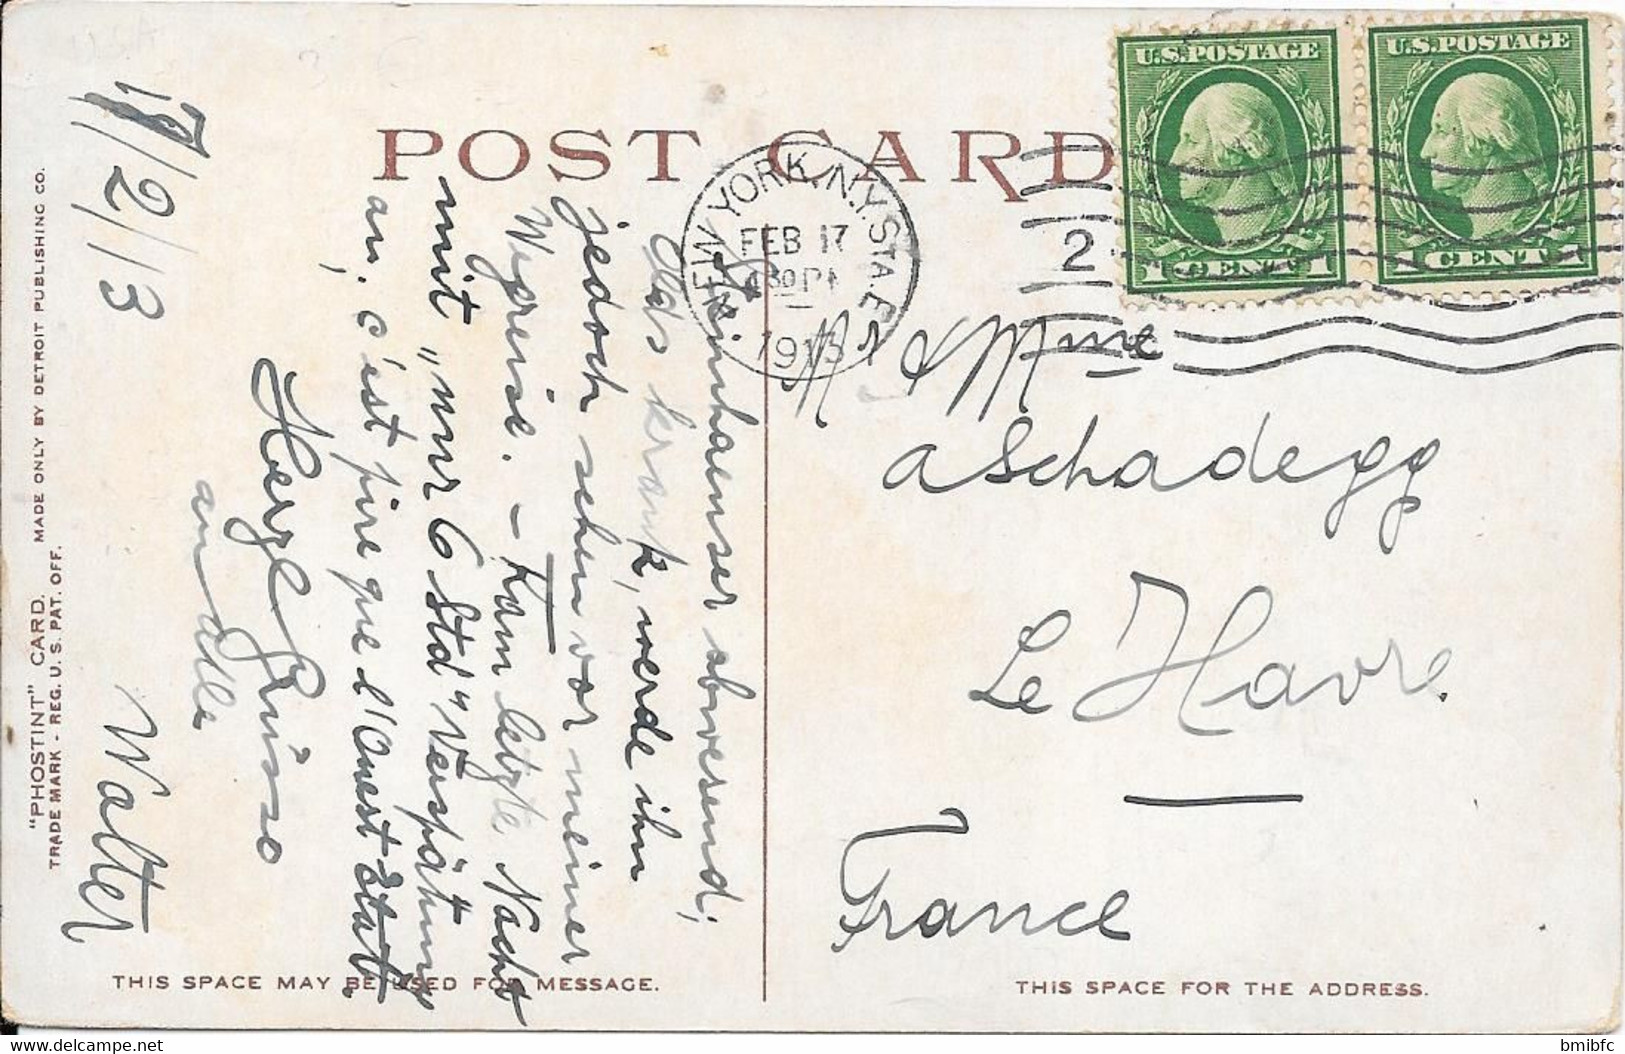 POST CARD
U.S. POSTAGE
1 CENT 1
U.S. POSTAGE
1 CENT 1
NEW YORK, N.Y. STA. E
FEB 17
430 PM
1913
2
17/2/13
Steinhaeuser abwesend;
krank, werde ihn
jedoch sehen vor meiner
Wegreise. - Kam letzte Nacht
mit „nur 6 Std" Verspätung
an, c'est pire que l'Ouest Etat.
Herzl Grüsse
an Alle
Walter
M & Mme
A Schadegg
Le Havre
France
"PHOSTINT" CARD. MADE ONLY BY DETROIT PUBLISHING CO.
TRADE MARK - REG. U. S. PAT. OFF.
THIS SPACE MAY BE USED FOR MESSAGE.
THIS SPACE FOR THE ADDRESS.
www.delcampe.net
bmibfc